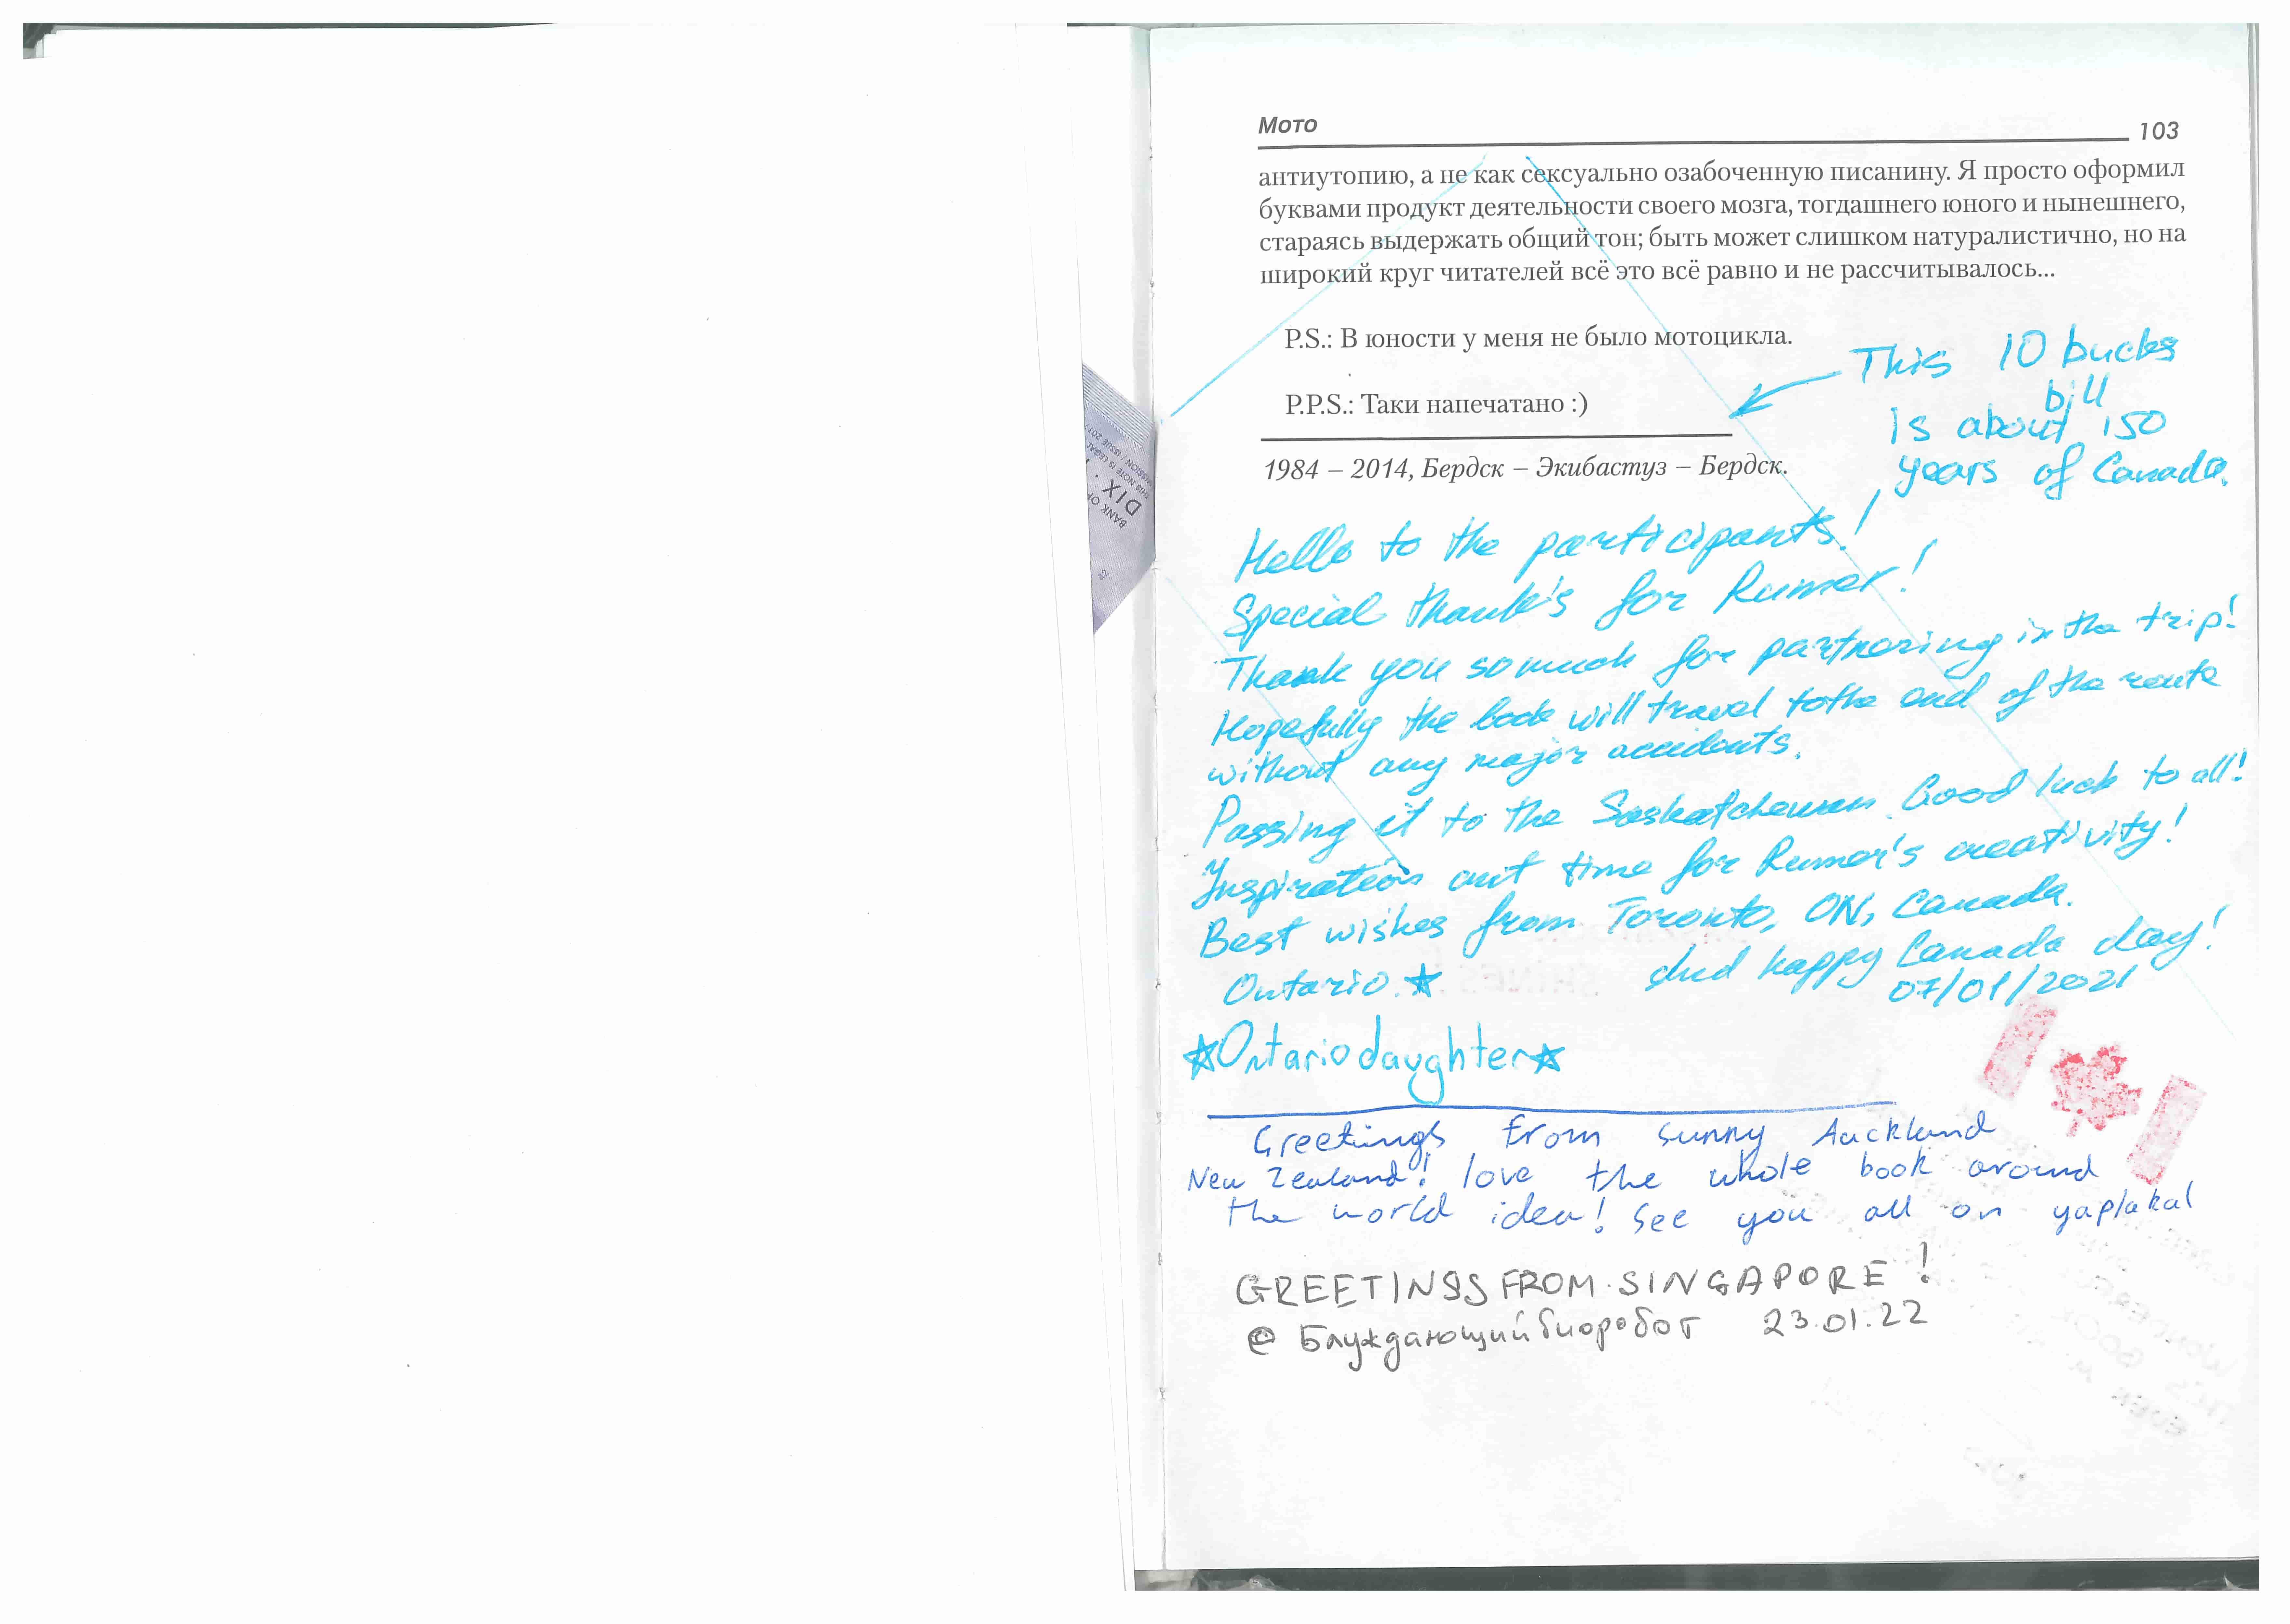 Мото 103
антиутопию, а не как сексуально озабоченную писанину. Я просто оформил
буквами продукт деятельности своего мозга, тогдашнего юного и нынешнего,
стараясь выдержать общий тон; быть может слишком натуралистично, но на
широкий круг читателей всё это всё равно и не рассчитывалось...
P.S.: В юности у меня не было мотоцикла.
P.P.S.: Таки напечатано :)
1984 – 2014, Бердск – Экибастуз – Бердск.
This 10 bucks
bill
is about 150
years of Canada.
BANK OF
DIX
THIS NOTE IS LEGAL
ISSUE 2017
Hello to the participants!
Special thank's for Rumer!
Thank you so much for partnering in the trip!
Hopefully the book will travel to the end of the route
without any major accidents.
Passing it to the Saskatchewan. Good luck to all!
Inspiration ant time for Rumer's creativity!
Best wishes from Toronto, ON, Canada.
Ontario.★ And happy Canada day!
07/01/2021
★Ontario daughter★
Greetings from sunny Auckland
New Zealand! love the whole book around
the world idea! See you all on yaplakal
GREETINGS FROM SINGAPORE!
@ Блуждающий биоробот 23.01.22